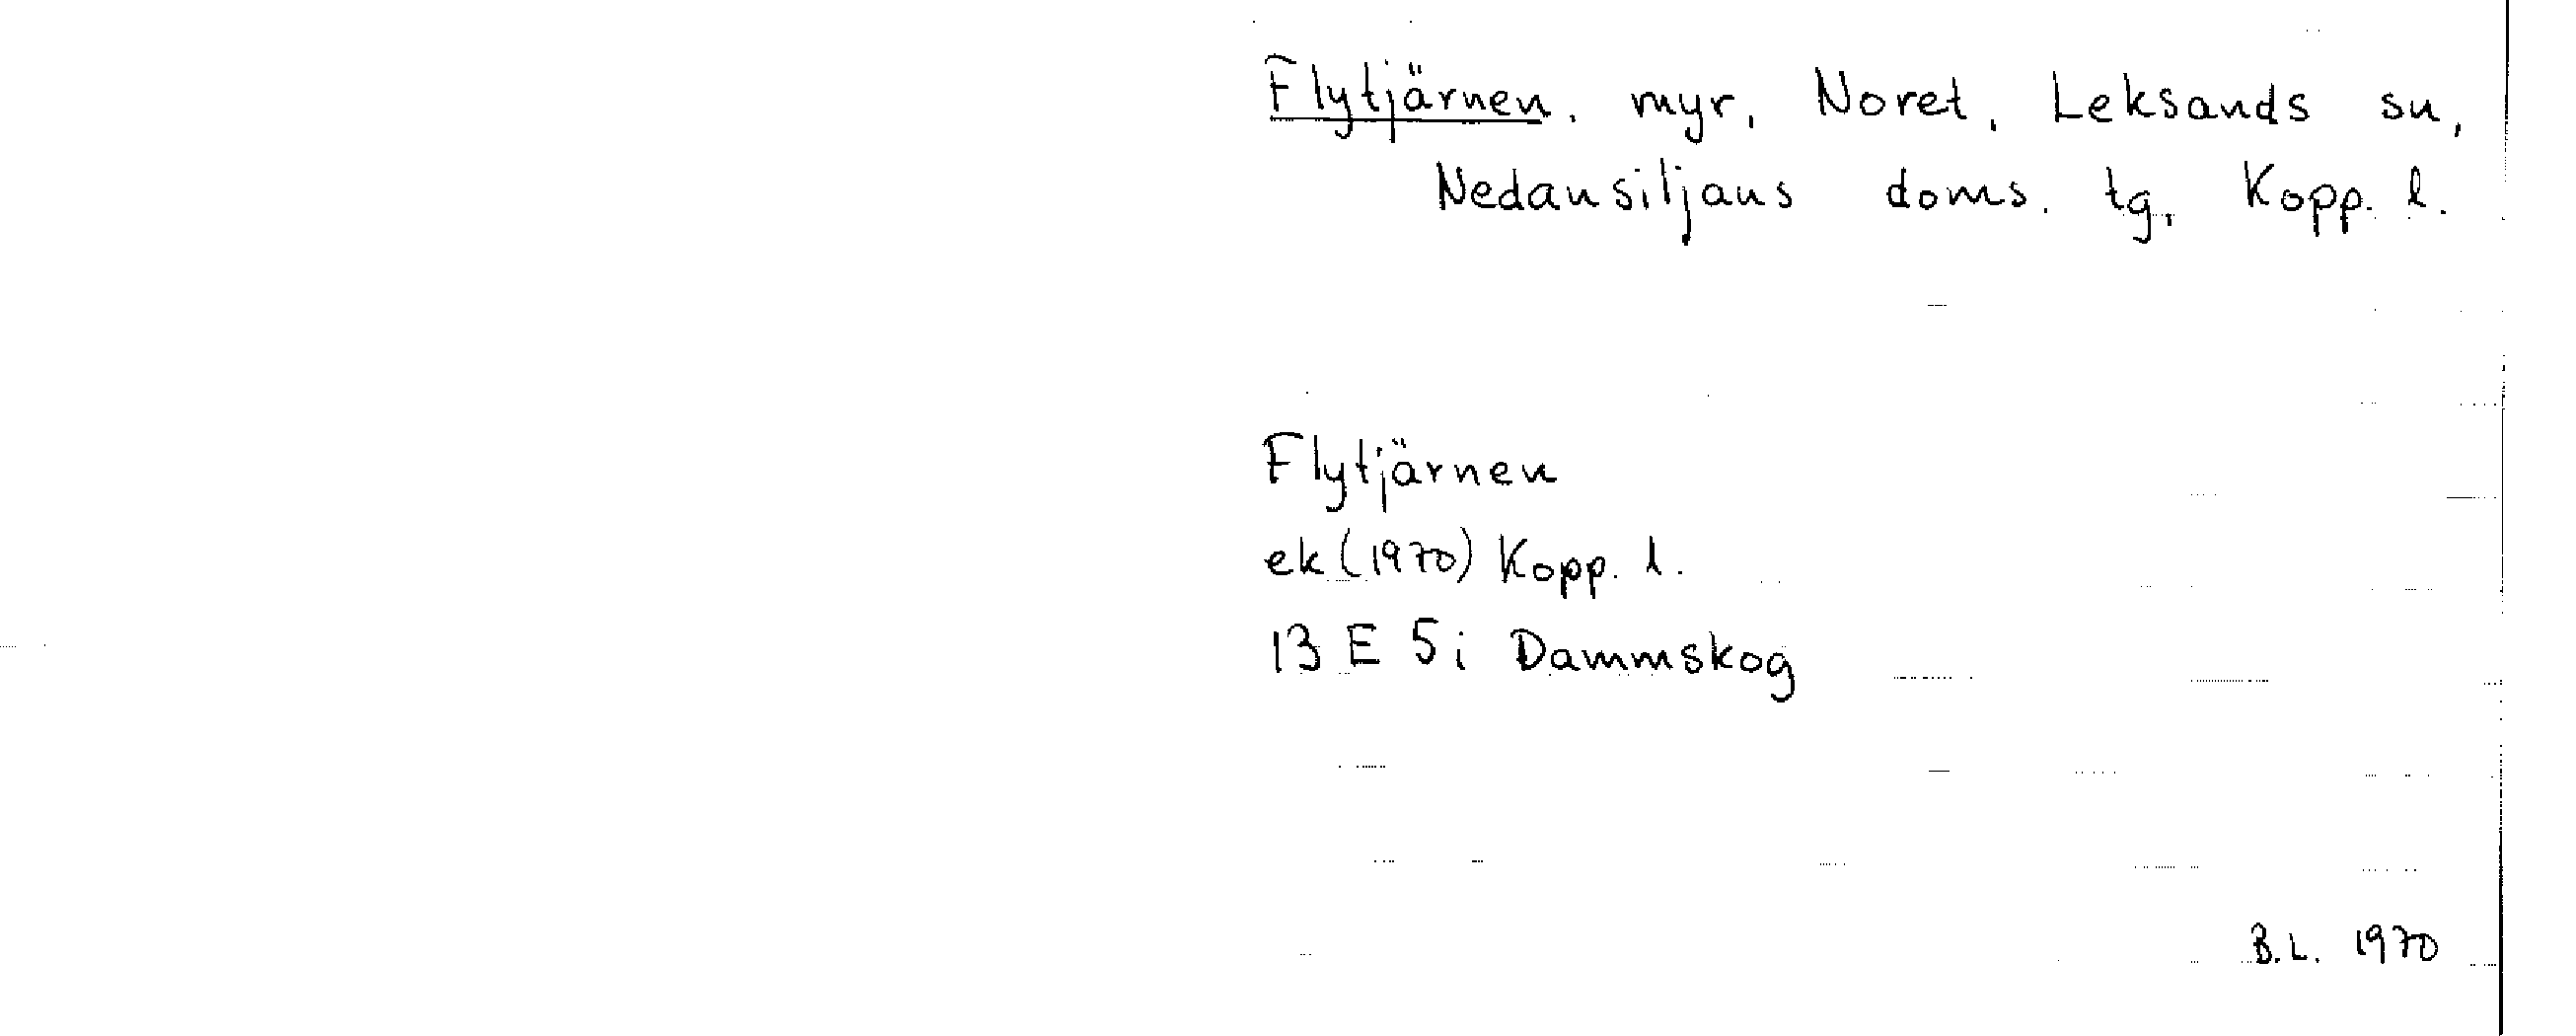 Flytjärnen, myr, Noret, Leksands sn,
Nedansiljans doms. tg, Kopp. l.
Flytjärnen
ek (1970) Kopp. l.
13 E 5i Dammskog
B.L. 1970